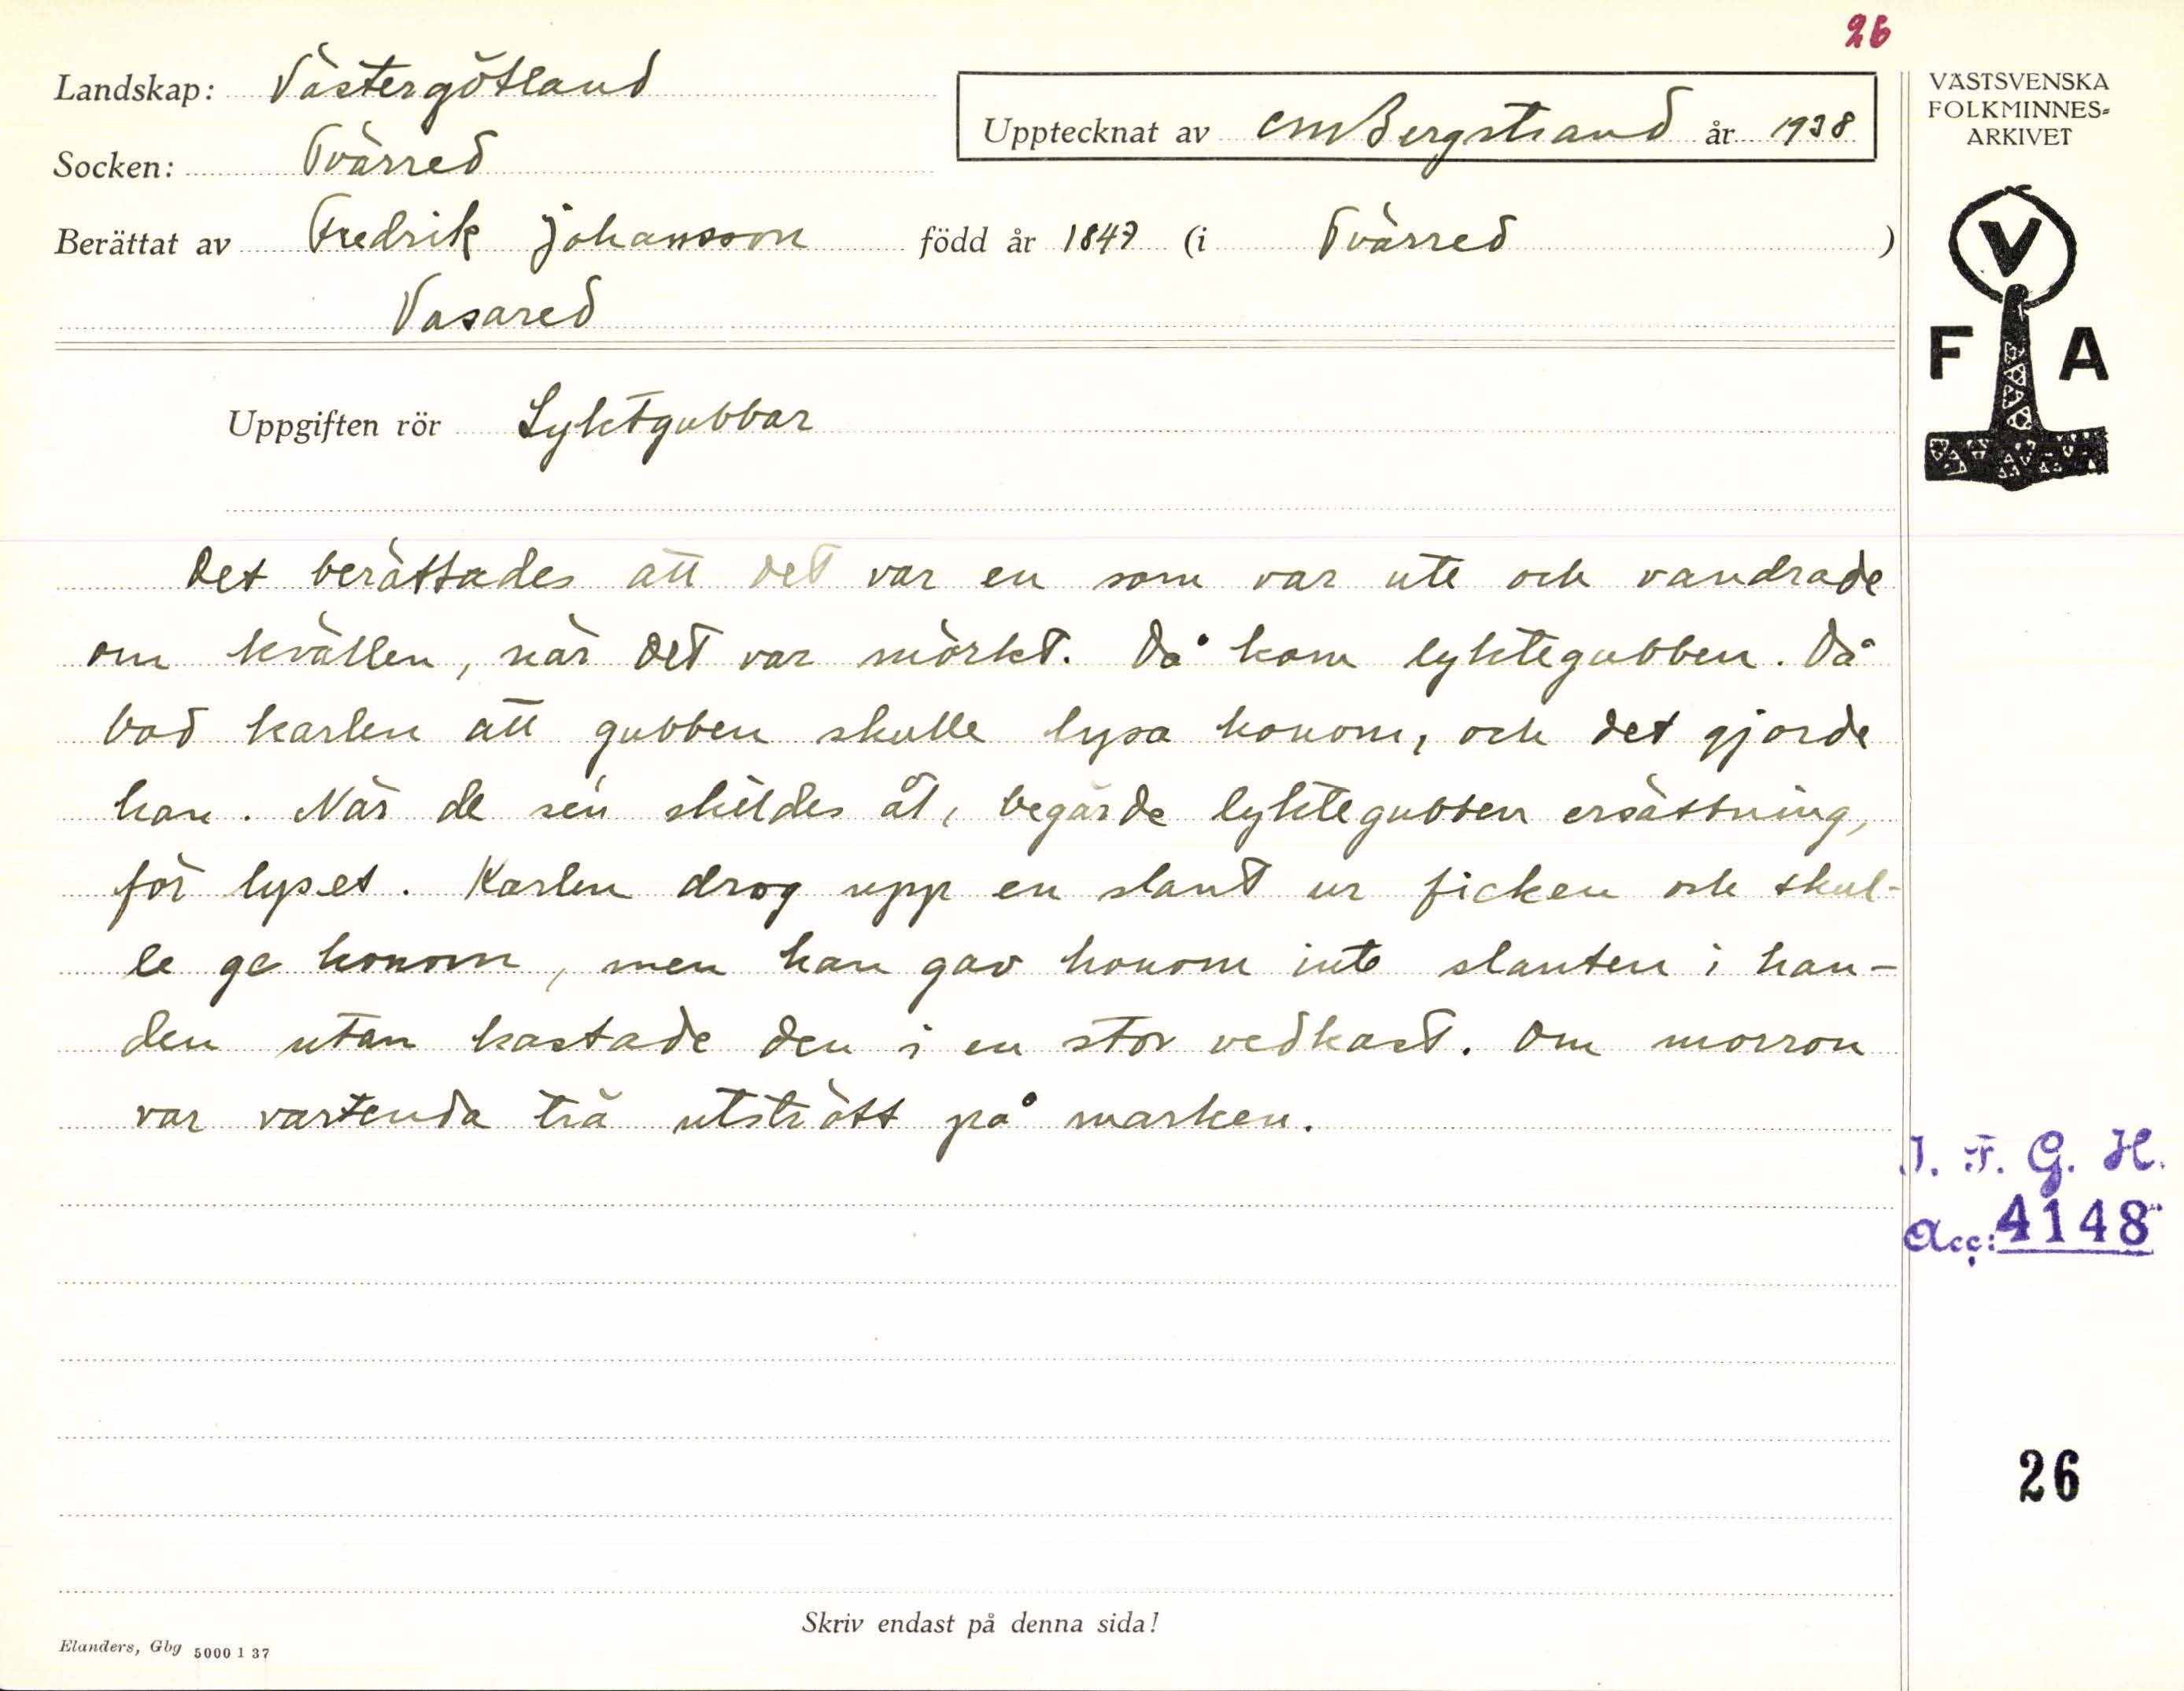 26
Landskap: Västergötland
Upptecknat av CM Bergstrand år 1938
Socken: Tvärred
Berättat av Fredrik Johansson född år 1847 (i Tvärred)
Vasared
VÄSTSVENSKA
FOLKMINNES-
ARKIVET
V
F A
Uppgiften rör Lyktgubbar
Det berättades att det var en som var ute och vandrade
om kvällen, när det var mörkt. Då kom lyktegubben. Då
bad karlen att gubben skulle lysa honom, och det gjorde
han. När de sen skildes åt, begärde lyktegubben ersättning,
för lyset. Karlen drog upp en slant ur ficken och skul-
le ge honom, men han gav honom inte slanten i han-
den utan kastade den i en stor vedkast. Om morron
var vartenda trä utstrött på marken.
I. F. G. H.
Acc: 4148
26
Skriv endast på denna sida!
Elanders, Gbg 5000 1 37